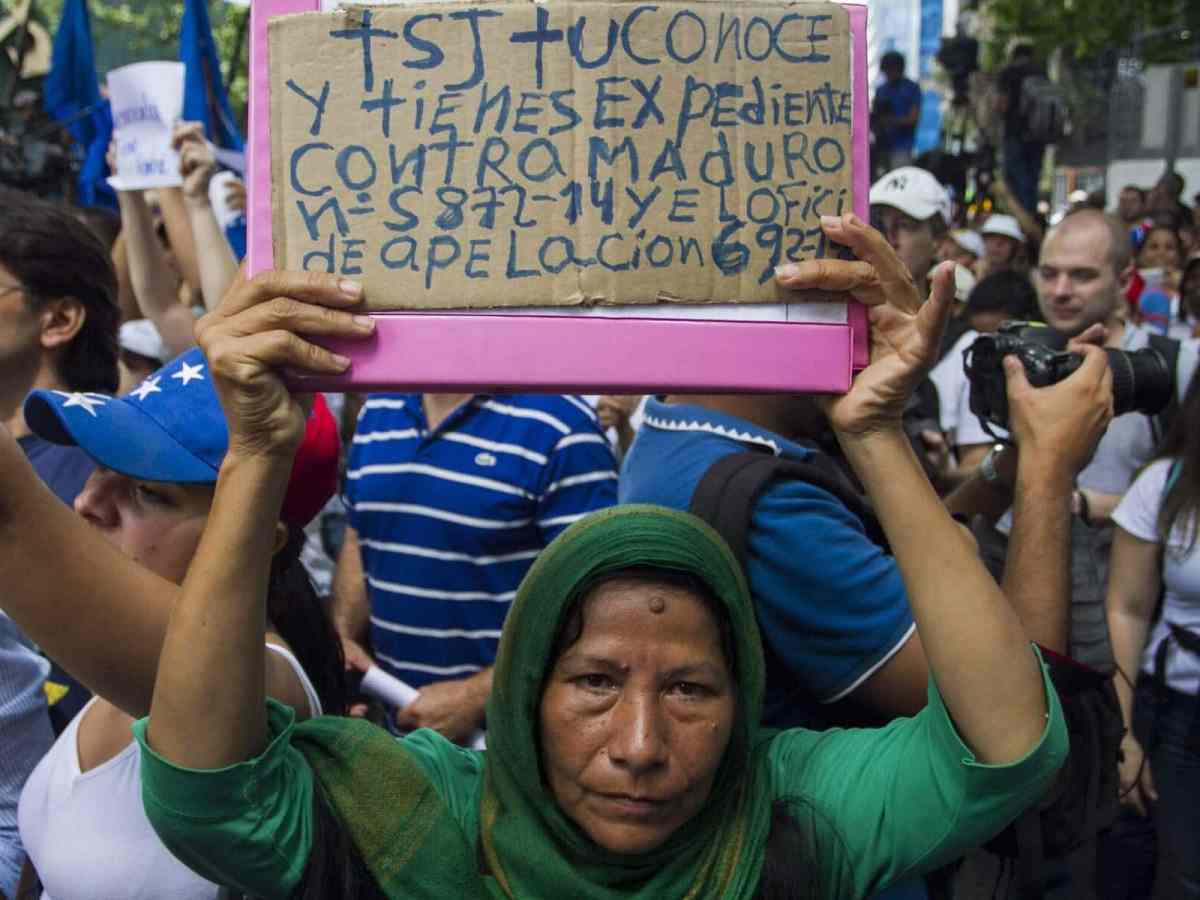 TSJ TU CONOCE
Y tiENES EXpEdiENtE
CONTRA MAdURO
Nº S872-14 Y EL OFICI
dE apELaCiON 692-1